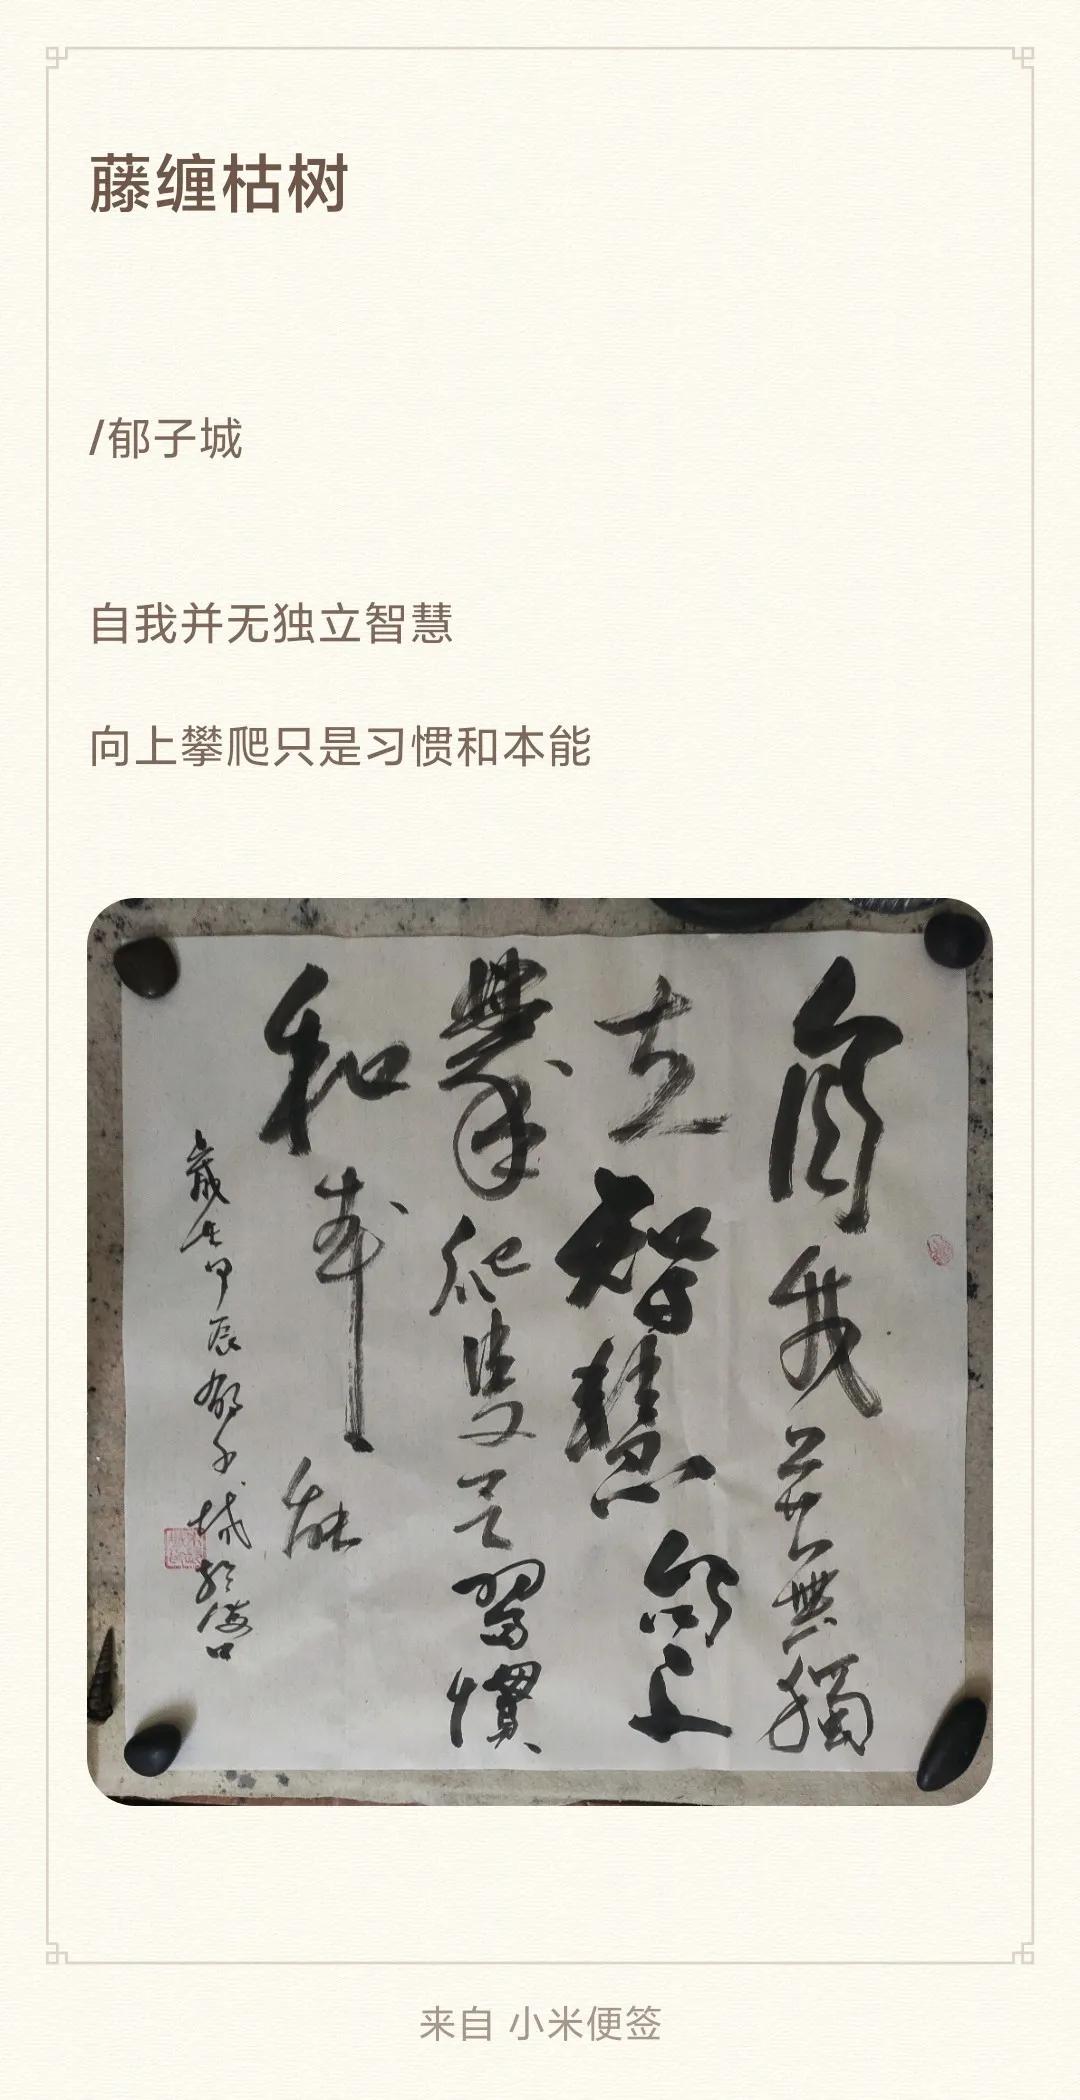 藤缠枯树
/郁子城
自我并无独立智慧
向上攀爬只是习惯和本能
自我并無獨
立智慧向上
攀爬隻是習慣
和本能
歲在甲辰郁子城於
口
来自 小米便签